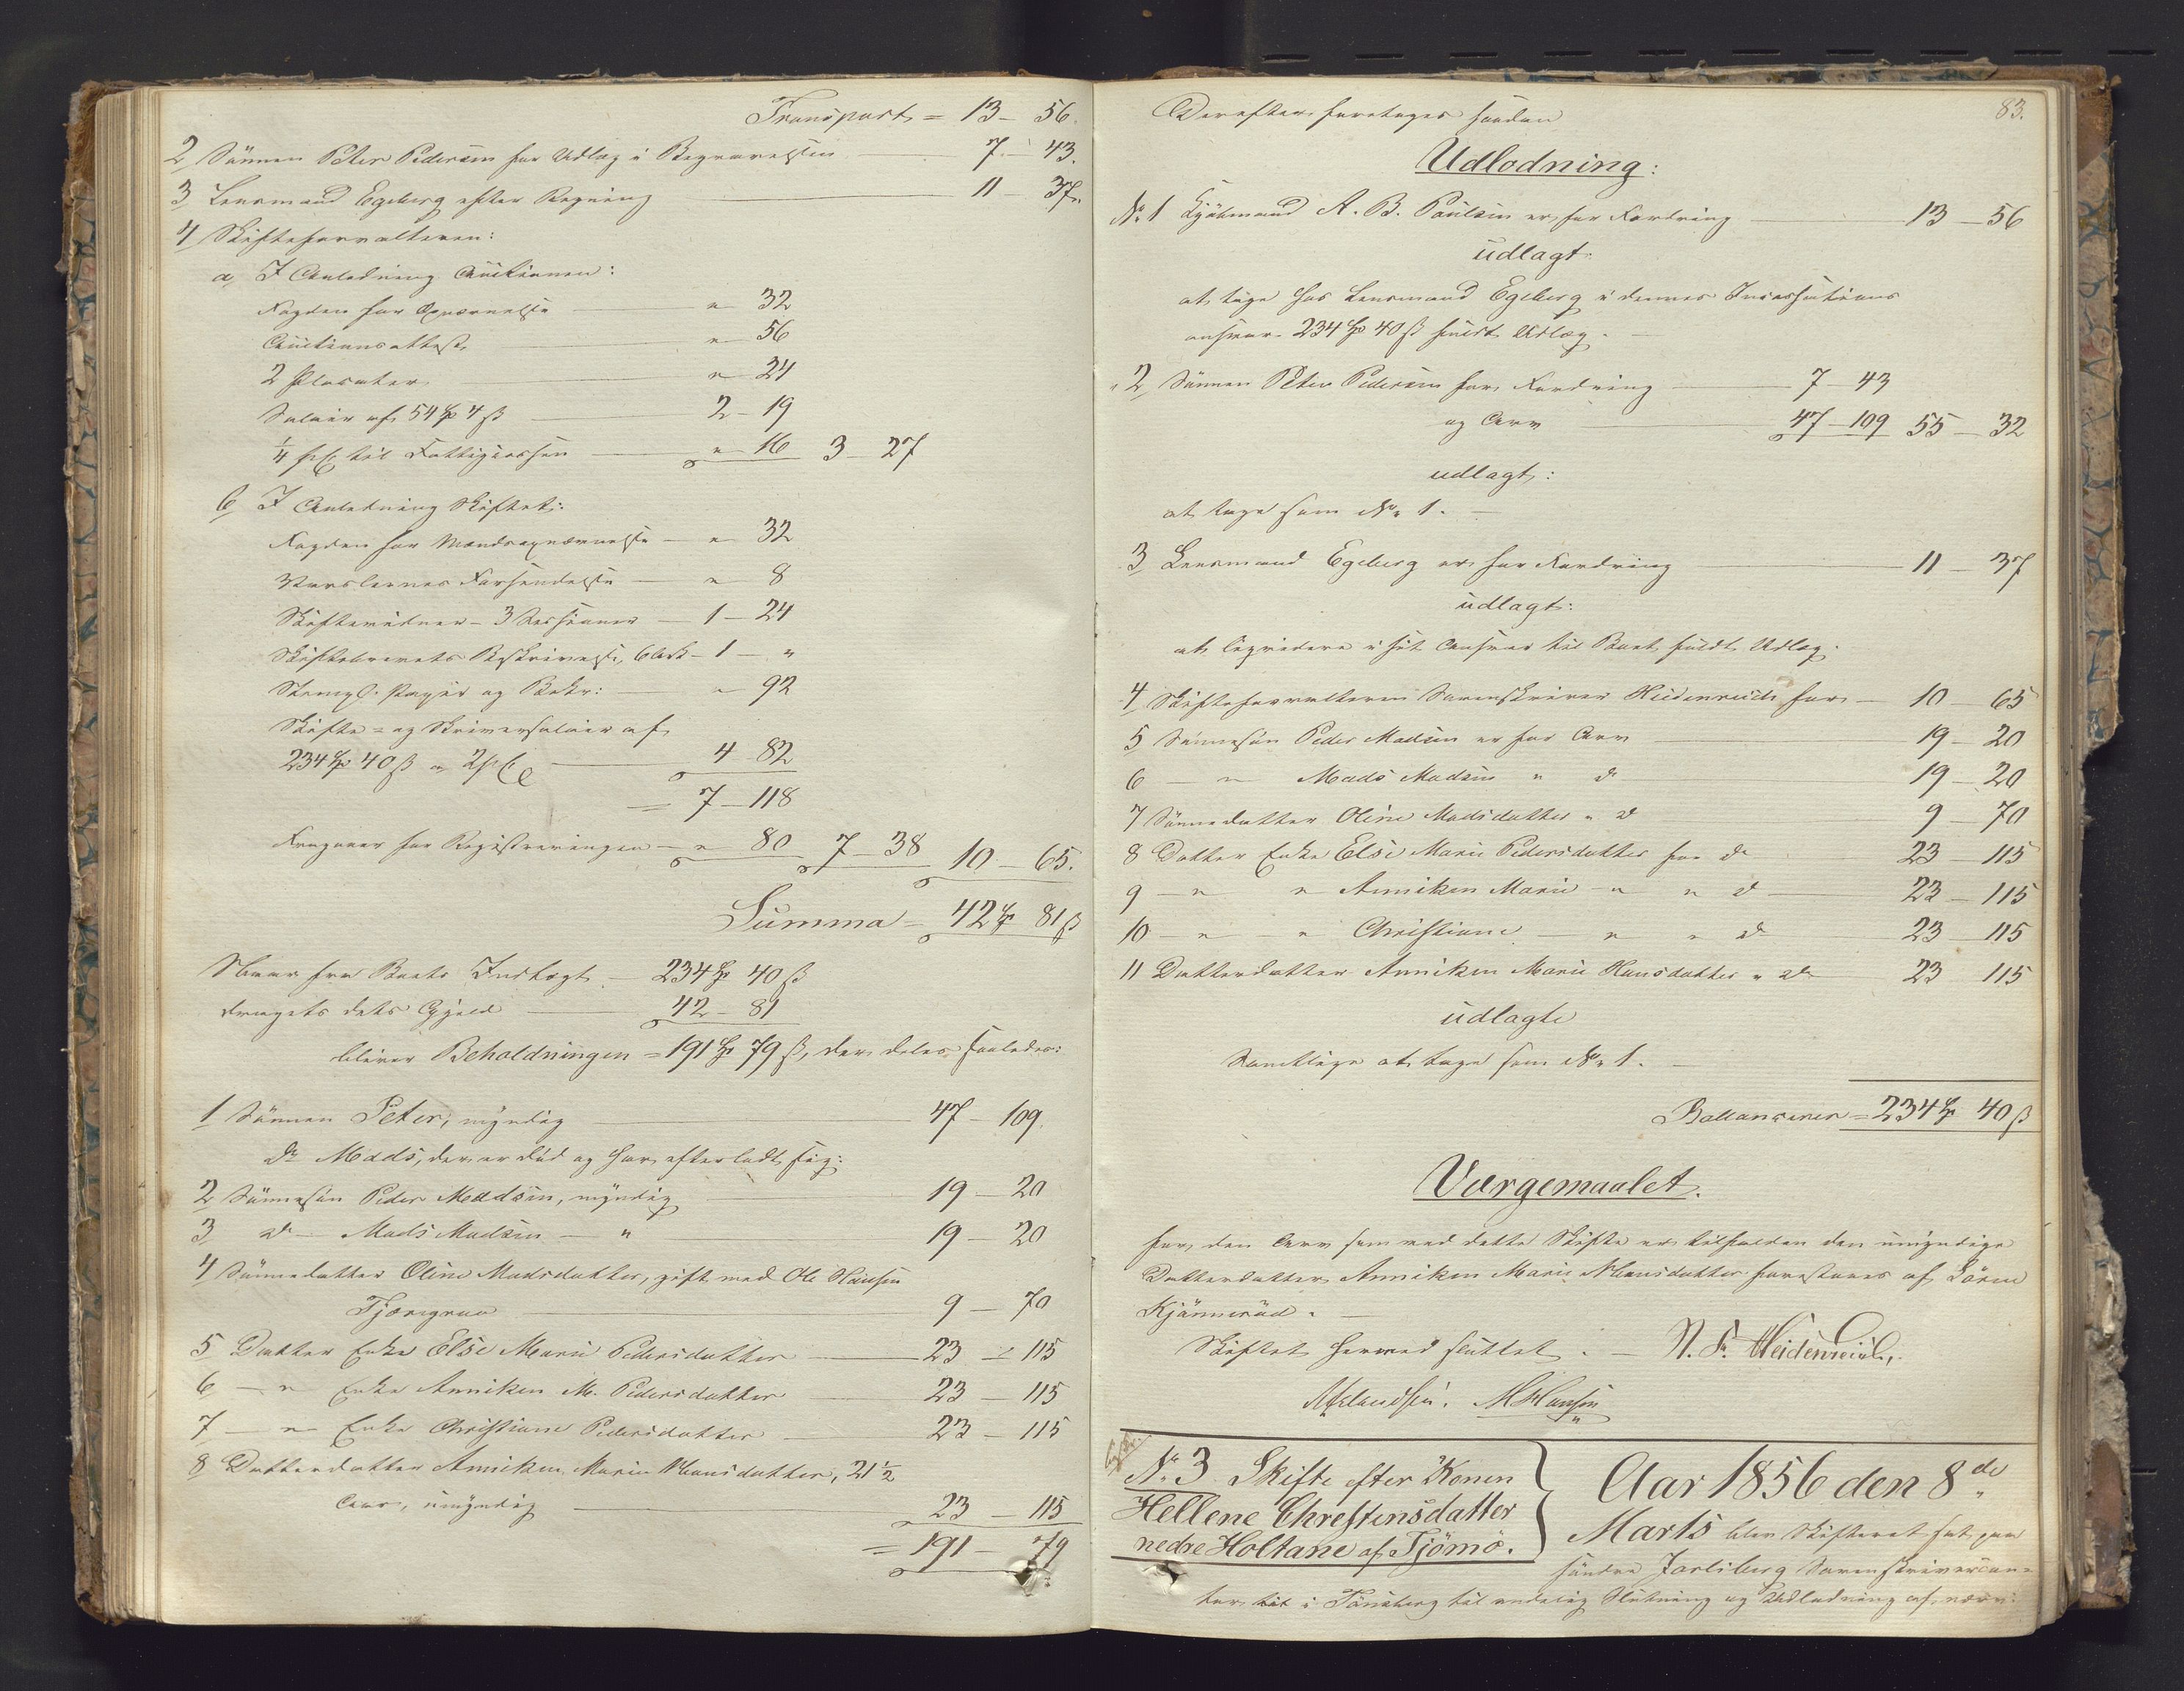 Transport = 13 – 56.
2, Sønnen Peter Pedersen for Udlæg i Begravelsen 7. – 43.
3, Lensmand Egeberg efter Regning 11 – 37.
4, Skifteforvalteren:
a, I Anledning Auctionen:
Fogden for Opnævnelse " 32
Auctionsattest " 56
2 Placater " 24
Salair af 54 Spd 4 ß 2 – 19
1/4 pCt til Fattigcassen " 16 3 – 27
b, I Anledning Skiftet:
Fogden for Mandsopnævnelse – " 32
Varslernes Forsendelse – " 8
Skiftevidner – 3 Sessioner – 1 – 24
Skiftebrevets Beskrivelse, 6 Ark – 1 – "
Stempl. Papir og Bekr: " 92
Skifte- og Skriversalair af
234 Spd 40 ß a 2 pCt 4 – 82
= 7 – 118
Fragaaer for Registreringen – " 80 7 – 38 10 – 65.
Summa = 42 Spd 81 ß
Naar fra Boets Indtægt – 234 Spd 40 ß
dragets dets Gjeld 42 – 81
bliver Beholdningen = 191 Spd 79 ß, der deles saaledes:
1 Sønnen Peter, myndig 47 – 109.
do Mads, der er død og har efterladt sig:
2 Sønnesøn Peder Madsen, myndig 19 – 20
3, do – Mads Madsen – " 19 – 20
4 Sønnedatter Oline Madsdatter, gift med Ole Hansen
9 – 70
5 Datter Enke Else Marie Pedersdatter 23 – 115
6, – " Enke Anniken M. Pedersdatter 23 – 115
7 – " Enke Christiane Pedersdatter 23 – 115
8 Datterdatter Anniken Marie Hansdatter, 21 1/2
Aar, umyndig 23 – 115
= 191 – 79
83.
Derefter foretoges saadan
Udlodning:
No 1 Kjøbmand A. B. Paulsen er for Fordring 13 – 56
udlagt
at tage hos Lensmand Egeberg i dennes Incassations
ansvar 234 Spd 40 ß fuldt Udlæg. –
" 2, Sønnen Peter Pedersen for Fordring 7 – 43
og Arv 47 – 109 55 – 32
udlagt:
at tage som No 1. –
3, Lensmand Egeberg er for Fordring 11 – 37
udlagt:
at liqvidere i sit Ansvar til Boet fuldt Udlæg.
4, Skifteforvalteren Sorenskriver Heidenreich for – 10 – 65
5 Sønnesøn Peder Madsen er for Arv 19 – 20
6 – " Mads Madsen " do 19 – 20
7 Sønnedatter Oline Madsdatter " do 9 – 70
8 Datter Enke Else Marie Pedersdatter for do 23 – 115
9 – " " Anniken Marie – " " do 23 – 115
10 – " – " Christiane – " " do 23 – 115
11 Datterdatter Anniken Marie Hansdatter " do 23 115
udlagte
Samtlige at tage som No 1. –
Ballancerer = 234 Spd 40 ß
Værgemaalet.
for den Arv som ved dette Skifte er tilfalden den umyndige
Datterdatter Anniken Marie Hansdatter forestaaes af Sören
Kjønnerød. –
Skiftet hermed sluttet. – N. F. Heidenreich.
M Hansen
No 3 Skifte efter Konen
Hellene Chrestensdatter
nedre Holtane af Tjömö.
Aar 1856 den 8de
Marts blev Skifteret sat paa
søndre Jarlsberg Sorenskrivercon-
tor i Tønsberg til endelig Slutning og Udlodning af nærv: